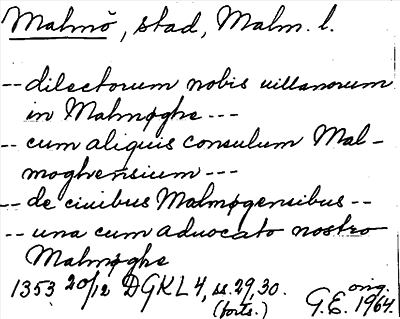 Malmö, stad, Malm. l.
-- dilectorum nobis uillanorum
in Malmøghe ---
-- cum aliquis consulum Mal-
moghensium ---
-- de ciuibus Malmøgensibus --
-- una cum aduocato nostro
Malmøghe
1353 20/12 DGKL 4, ss. 29, 30. orig.
(forts.) G.E. 1964.